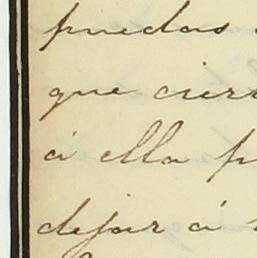 puedas
que
á ella
dejar á